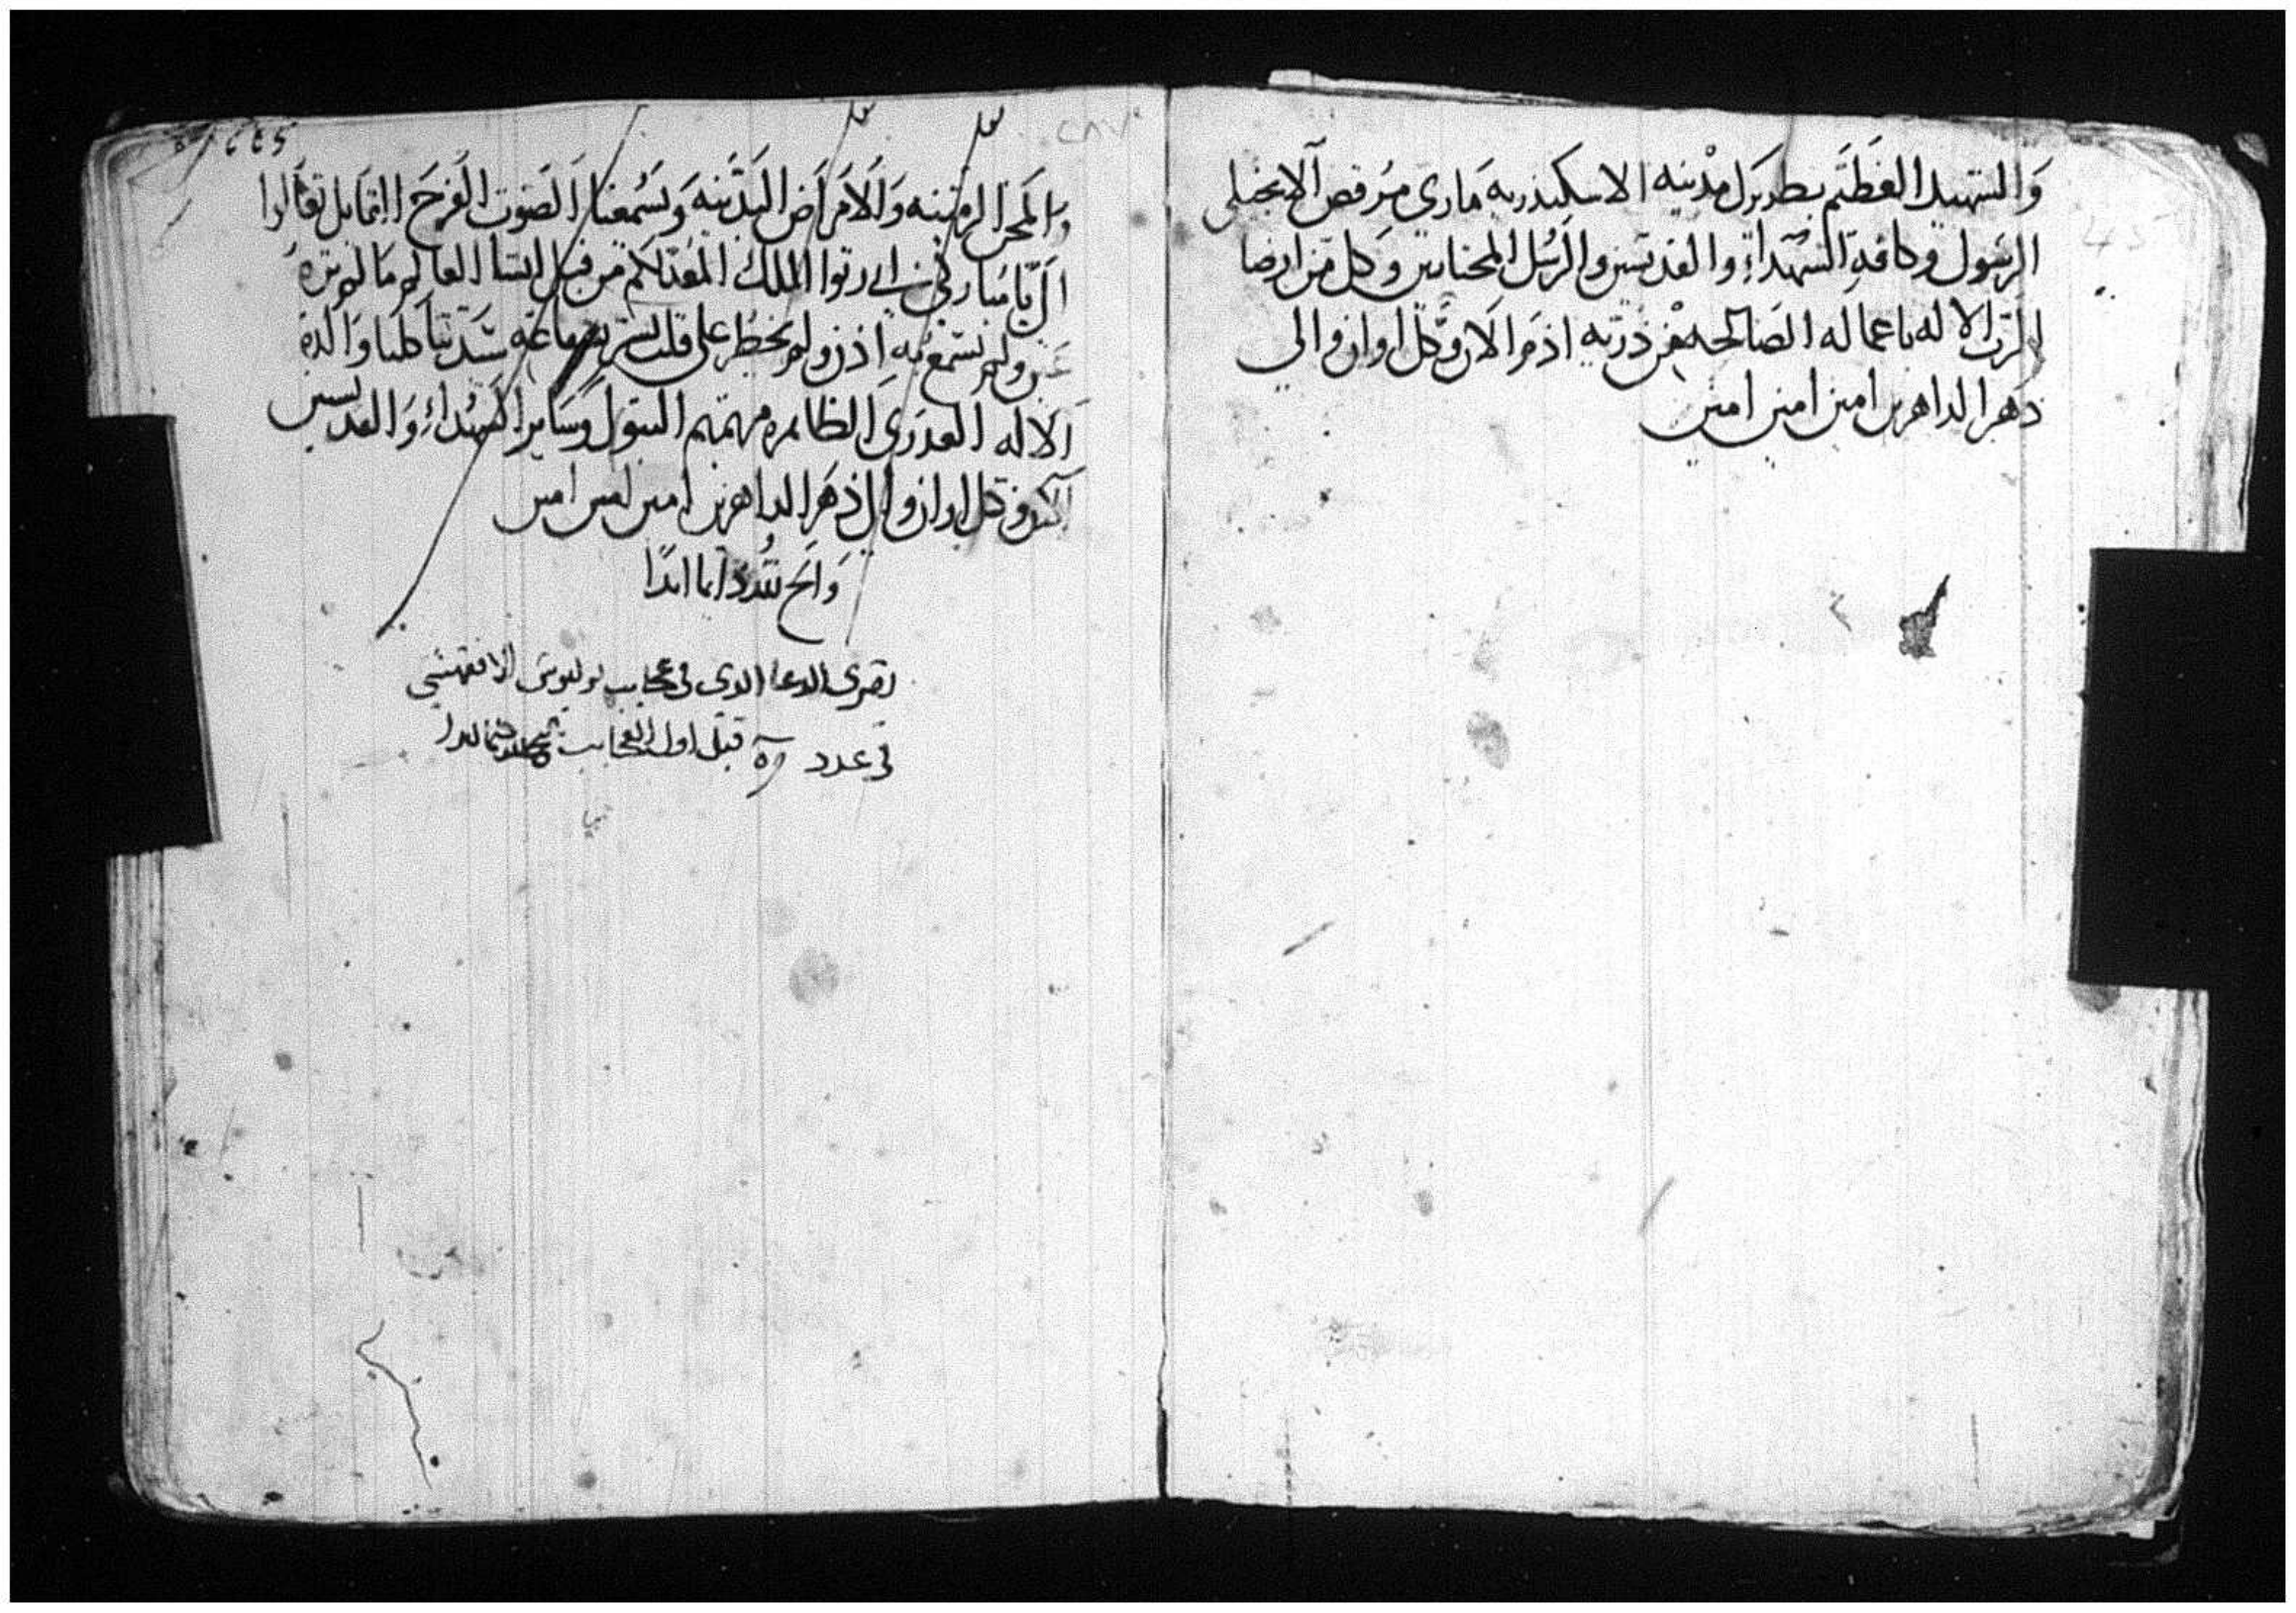 والشهيد العظيم بطريرك مدينه الاسكندريه ماري مرقص الانجيلي
الرسول وكافة الشهداء والقديسين والرسل المختارين وكل من ارضا
الرب الاله باعماله الصالحه من ذرية ادم الان وكل اوان والي
دهر الداهرين امين امين امين
والمحن الزمنيه والامراض البدنيه ويسمعنا الصوت الفرح القايل تعالوا
الي يا مباركي ابي رثوا الملك المعد لكم من قبل انشا العالم ما لم تره
عين ولم تسمع به اذن ولم يخطر علي قلب بشر بشفاعة ستنا كلنا والدة
الاله العدري الطاهره مرتمريم البتول وساير الشهداء والقديسين
الان وكل اوان والي دهر الداهرين امين امين امين
دايما ابدا
تقري الدعا الدي في عجايب يوليوس الاقفهصي
في عدد قبل اول العجايب